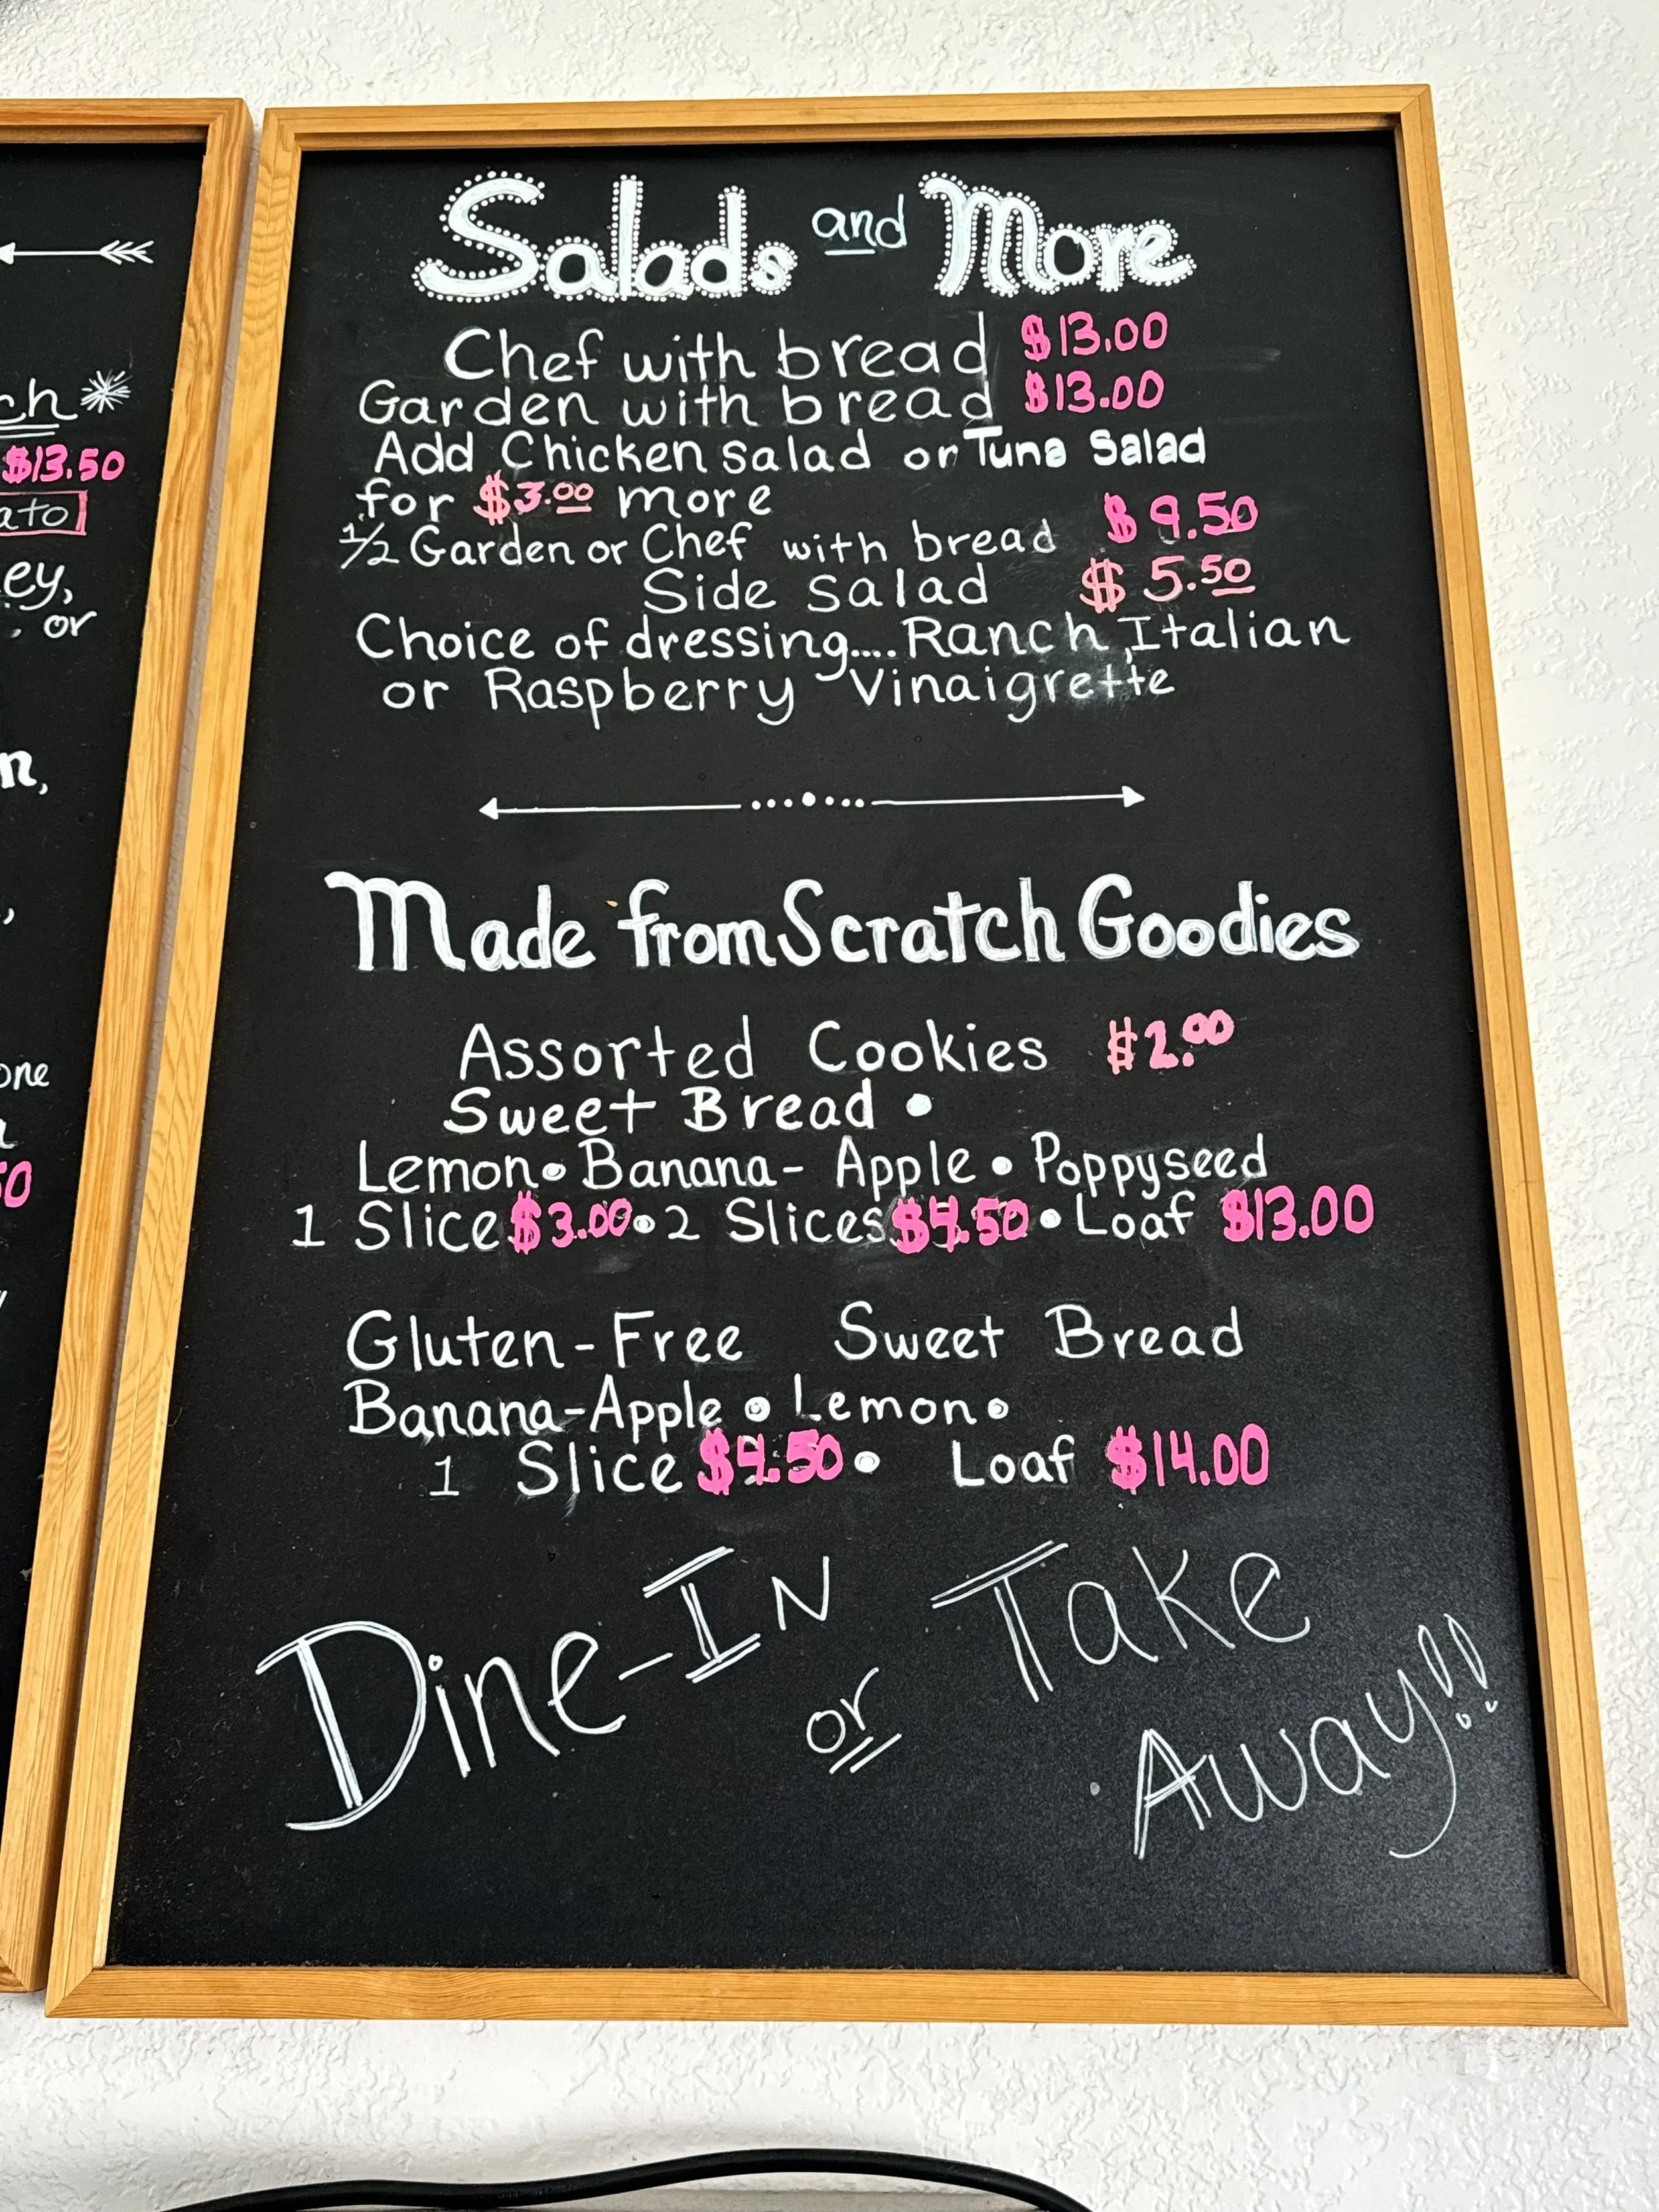 ch
$13.50
ato
ey,
, or
n,
one
50
Salads and More
Chef with bread $13.00
Garden with bread $13.00
Add Chicken salad or Tuna Salad
for $3.00 more
1/2 Garden or Chef with bread $9.50
Side salad $5.50
Choice of dressing.... Ranch, Italian
or Raspberry Vinaigrette
Made from Scratch Goodies
Assorted Cookies $2.00
Sweet Bread •
Lemon • Banana- Apple • Poppyseed
1 Slice $3.00 • 2 Slices $4.50 • Loaf $13.00
Gluten-Free Sweet Bread
Banana-Apple • Lemon •
1 Slice $4.50 • Loaf $14.00
Dine-In or Take Away!!